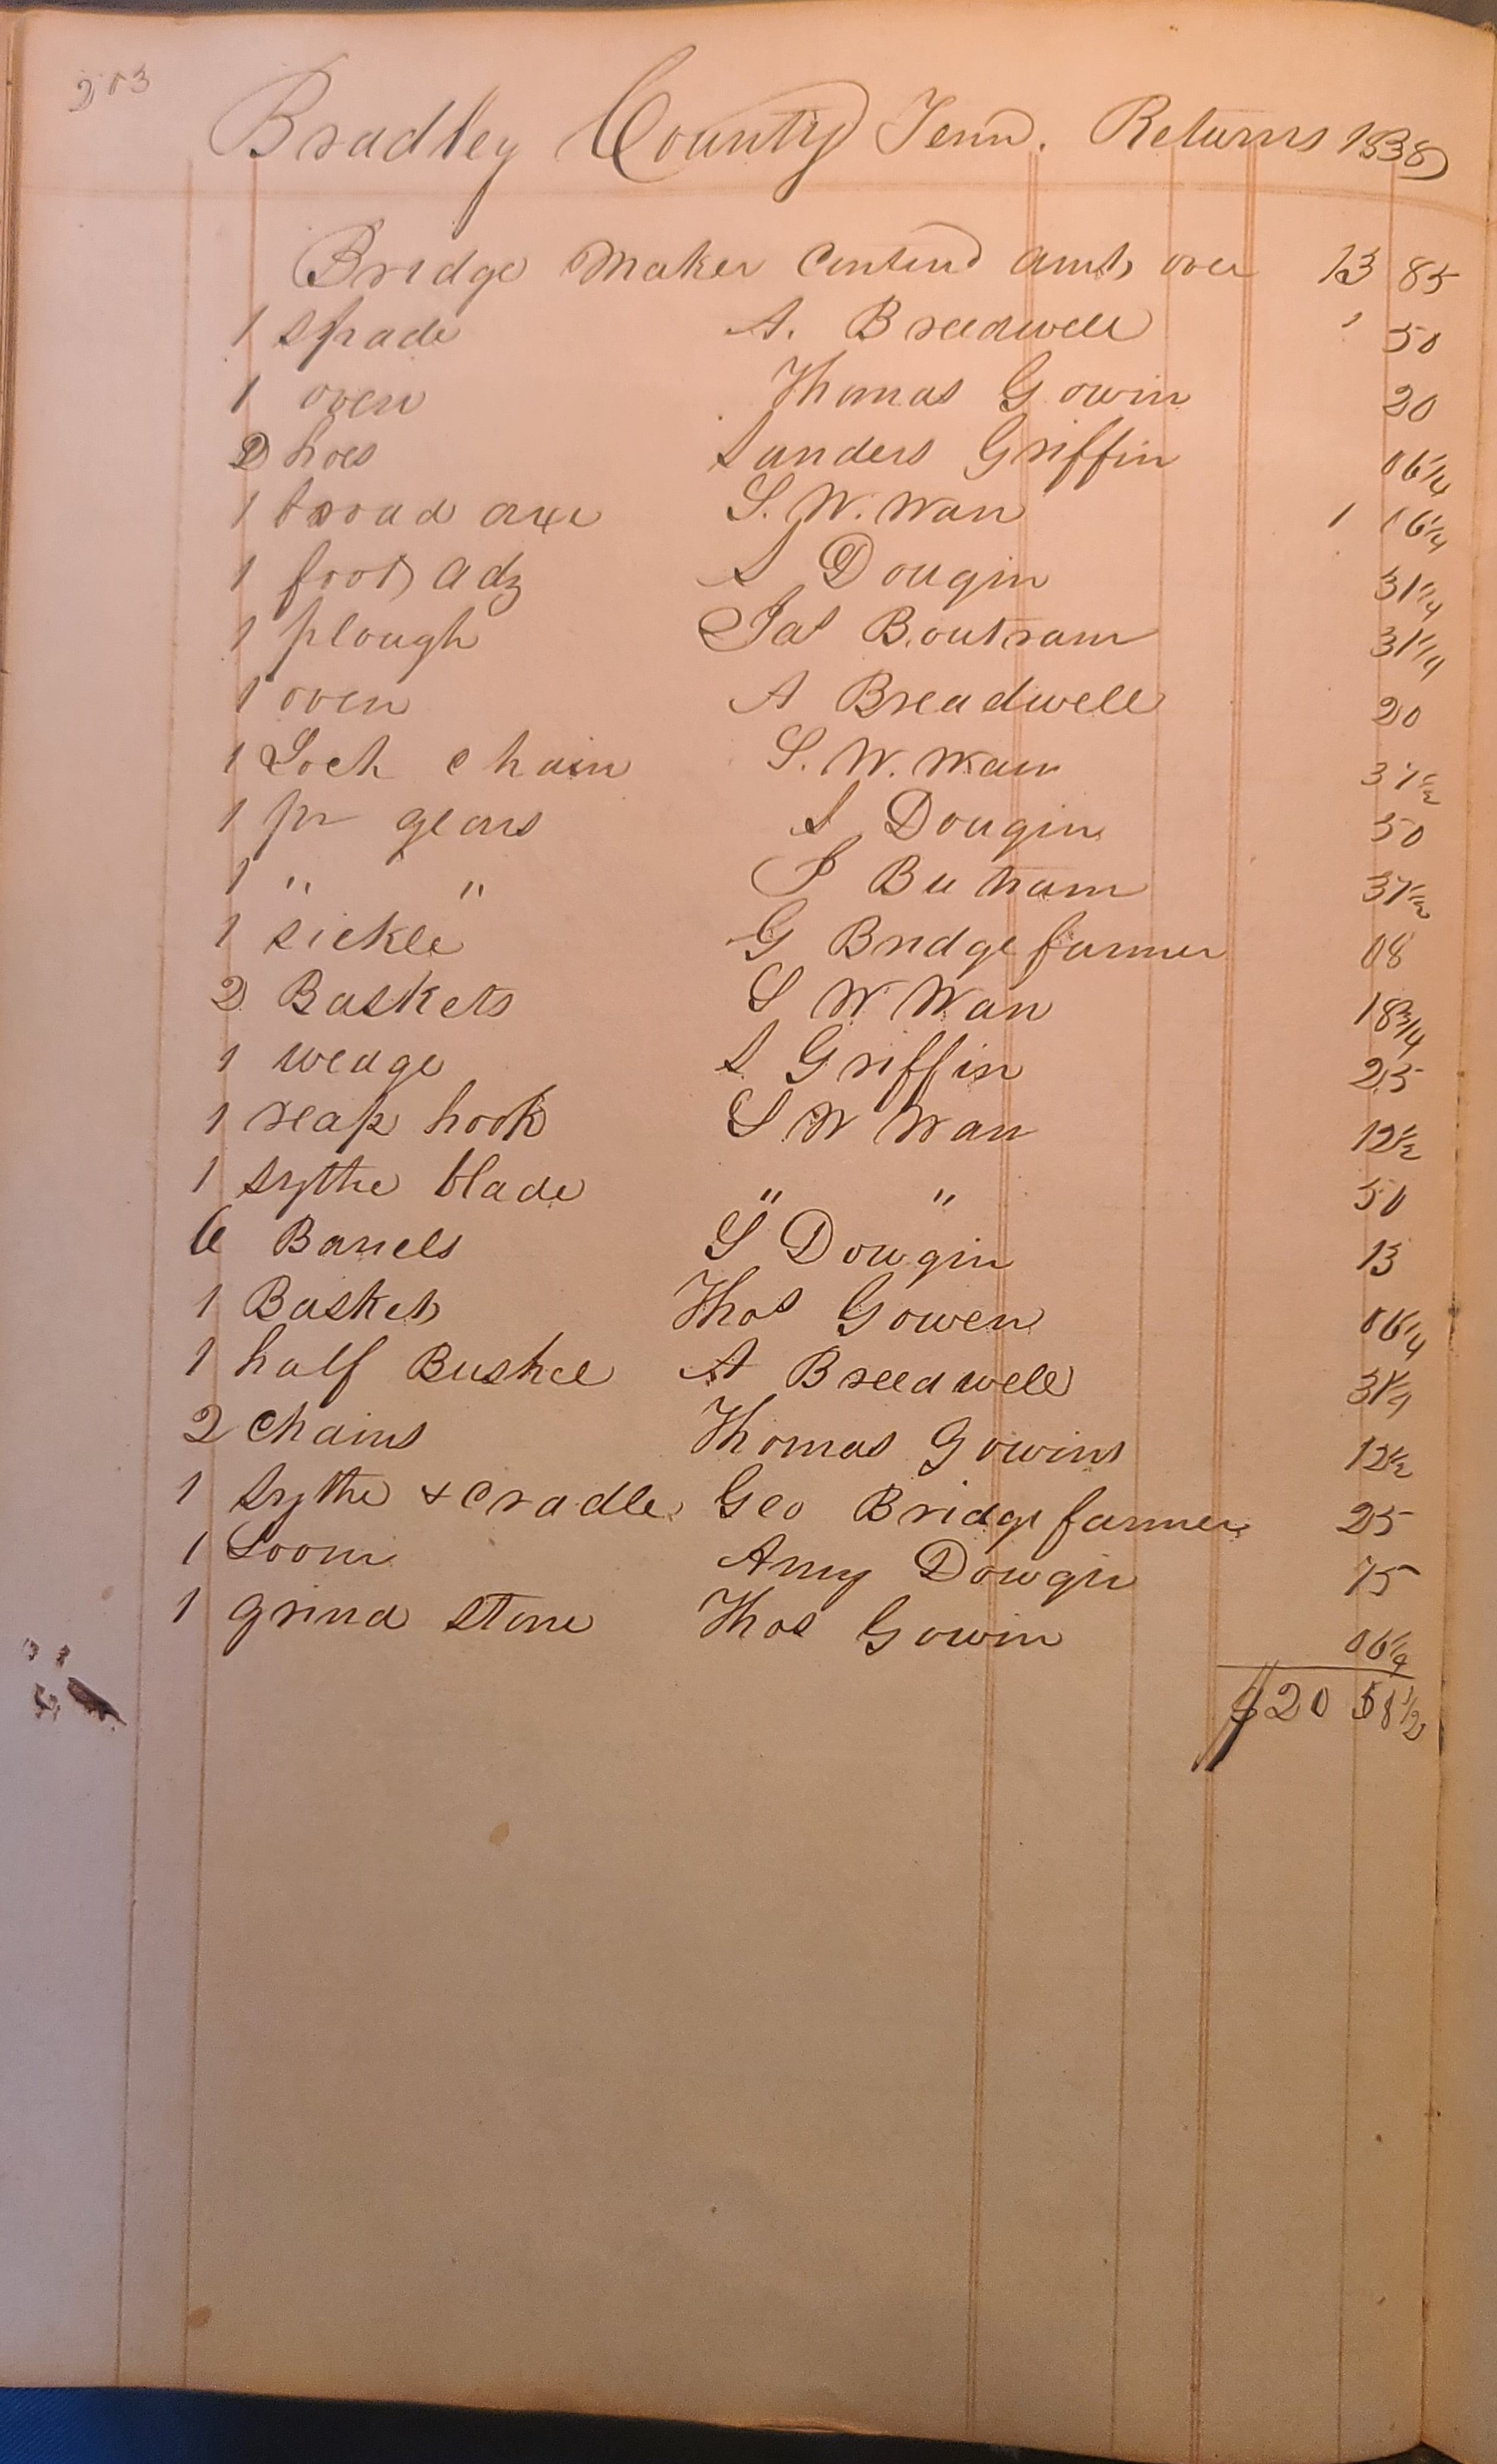 203
Bradley County Tenn. Returns 1838
Bridge Maker Contind amt over 13 85
1 spade A. Breedwell 50
1 oven Thomas Gowin 20
2 hoes Sanders Griffin 06 1/4
1 broad axe S. W. Wan 1 06 1/4
1 foot adz S Dougin 31 1/4
1 plough Jas Boutram 31 1/4
1 oven A Breadwell 20
1 Lock chain S. W. Wan 37 1/2
1 pr gears S Dougin 50
1 " " J Butram 37 1/2
1 sickle G Bridgefarmer 08
2 Baskets S W Wan 18 3/4
1 wedge S Griffin 25
1 reap hook S W Wan 12 1/2
1 sythe blade " " 50
6 Barrels S Dowgin 13
1 Basket Thos Gowen 06 1/4
1 half Bushel A Breedwell 31 1/4
2 Chains Thomas Gowins 12 1/2
1 sythe & cradle Geo Bridgefarmer 25
1 Loom Amy Dowgin 75
1 grind stone Thos Gowin 06 1/4
$20 58 1/2